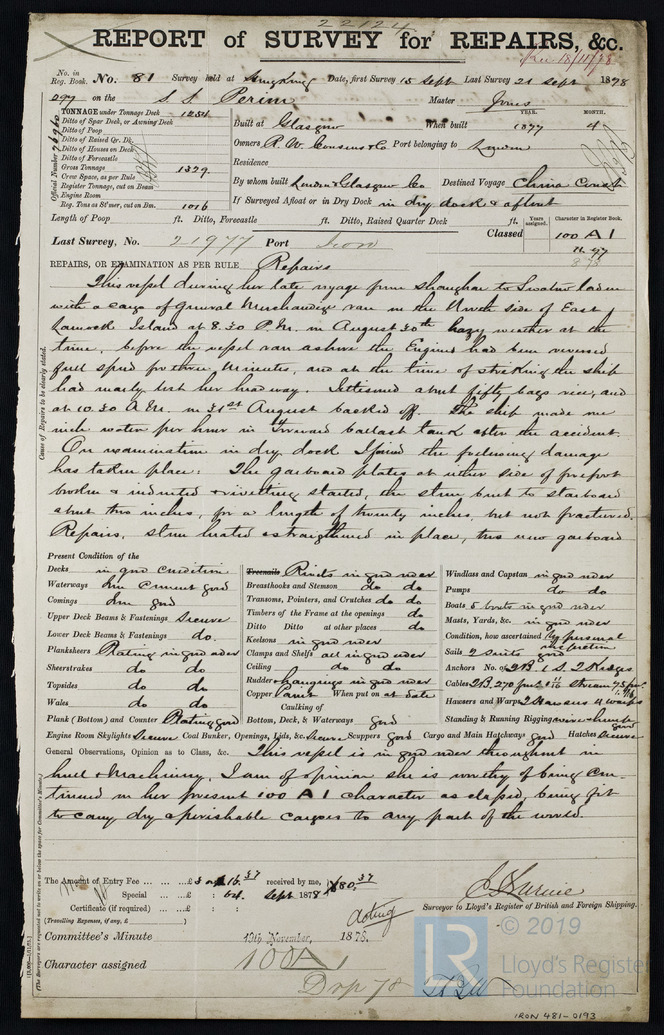 22124
REPORT of SURVEY for REPAIRS, &c.
Rec. 18/11/78
No. in Reg. Book. No. 81 Survey held at Hong Kong Date, first Survey 15 Sept Last Survey 21 Sept 1878
on the S.S. Perim Master Jones
TONNAGE under Tonnage Deck 1254
Ditto of Spar Deck, or Awning Deck
Ditto of Poop
Ditto of Raised Qr. Dk.
Ditto of Houses on Deck
Ditto of Forecastle
Gross Tonnage 1329
Crew Space, as per Rule
Register Tonnage, cut on Beam
Engine Room
Reg. Tons as St'mer, cut on Bm. 1016
Official Number
Built at Glasgow When built YEAR. 1877 MONTH. 4
Owners R. W. Cousens & Co Port belonging to London
Residence
By whom built London & Glasgow Co Destined Voyage China Coast
If Surveyed Afloat or in Dry Dock in dry dock & afloat
Length of Poop ft. Ditto, Forecastle ft. Ditto, Raised Quarter Deck ft.
Years assigned. Character in Register Book.
Last Survey, No. 21977 Port Iron Classed 100 A1
REPAIRS, OR EXAMINATION AS PER RULE Repairs
Cause of Repairs to be clearly stated.
This vessel during her late voyage from Shanghai to Swatow laden
with a cargo of General Merchandise ran on the North side of East
Lamock Island at 8.30 P.M. on August 30th hazy weather at the
time, before the vessel ran ashore the Engines had been reversed
full speed for three minutes, and at the time of striking the ship
had nearly lost her head way. Jettisoned about fifty bags rice, and
at 10.30 A.M. on 31st August backed off. The ship made one
inch water per hour in forward ballast tank after the accident.
On examination in dry dock I found the following damage
has taken place: The garboard plates at either side of forefoot
broken & indented & rivetting started, the stem bent to starboard
about two inches, for a length of twenty inches, but not fractured.
Repairs, stem heated & straightened in place, two new garboard
Present Condition of the
Decks in good condition
Waterways Iron cement good
Comings Iron good
Upper Deck Beams & Fastenings Secure
Lower Deck Beams & Fastenings do.
Planksheers Plating in good order
Sheerstrakes do do
Topsides do do
Wales do do
Plank (Bottom) and Counter Plating good
Engine Room Skylights Secure Coal Bunker, Openings, Lids, &c. Secure Scuppers good Cargo and Main Hatchways good Hatches Secure
Treenails Rivets in good order
Breasthooks and Stemson do do
Transoms, Pointers, and Crutches do do
Timbers of the Frame at the openings do
Ditto Ditto at other places do
Keelsons in good order
Clamps and Shelfs all in good order
Ceiling do do
Rudder & hangings in good order
Copper Paint When put on at date
Caulking of
Bottom, Deck, & Waterways good
Windlass and Capstan in good order
Pumps do do
Boats 5 boats in good order
Masts, Yards, &c. in good order
Condition, how ascertained by personal inspection
Sails 2 suits good
Anchors No. of 2B. 1 S. 2 Kedges
Cables 2B. 270 fms
Hawsers and Warps 2 Hawsers 4 warps
Standing & Running Rigging wire & hemp good
General Observations, Opinion as to Class, &c. This vessel is in good order throughout in
hull & Machinery. I am of opinion she is worthy of being con-
tinued in her present 100 A1 character as classed, being fit
to carry dry & perishable cargoes to any part of the world.
(The Surveyors are requested not to write on or below the space for Committee's Minute.)
The Amount of Entry Fee £ received by me, $80.37
Special £ Sept 1878
Certificate (if required) £
(Travelling Expenses, if any, £ )
Surveyor to Lloyd's Register of British and Foreign Shipping.
Committee's Minute 19th November, 1878.
Character assigned 100A1
© 2019
Lloyd's Register
Foundation
IRON 481-0193